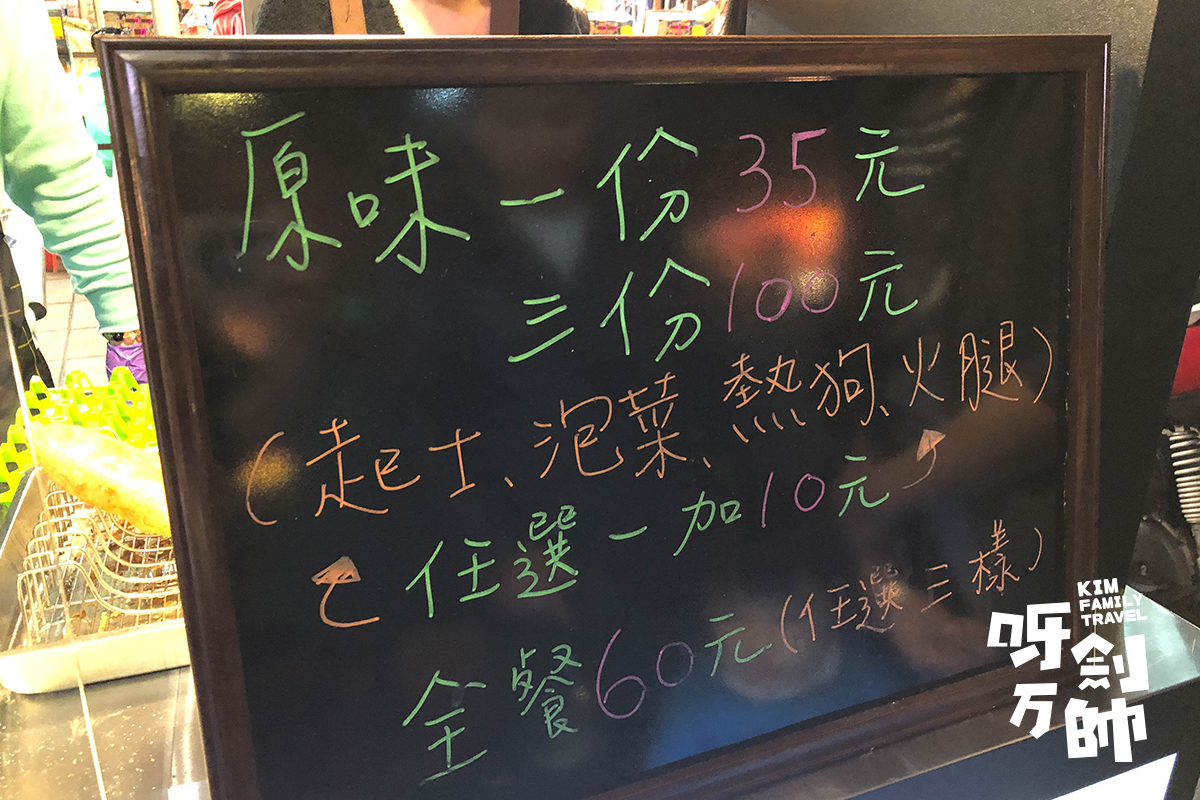 原味一份35元
三份100元
(起士、泡菜、熱狗、火腿)
任選一加10元
全餐60元(任選三樣)
KIM
FAMILY
TRAVEL
呀劍
万帥